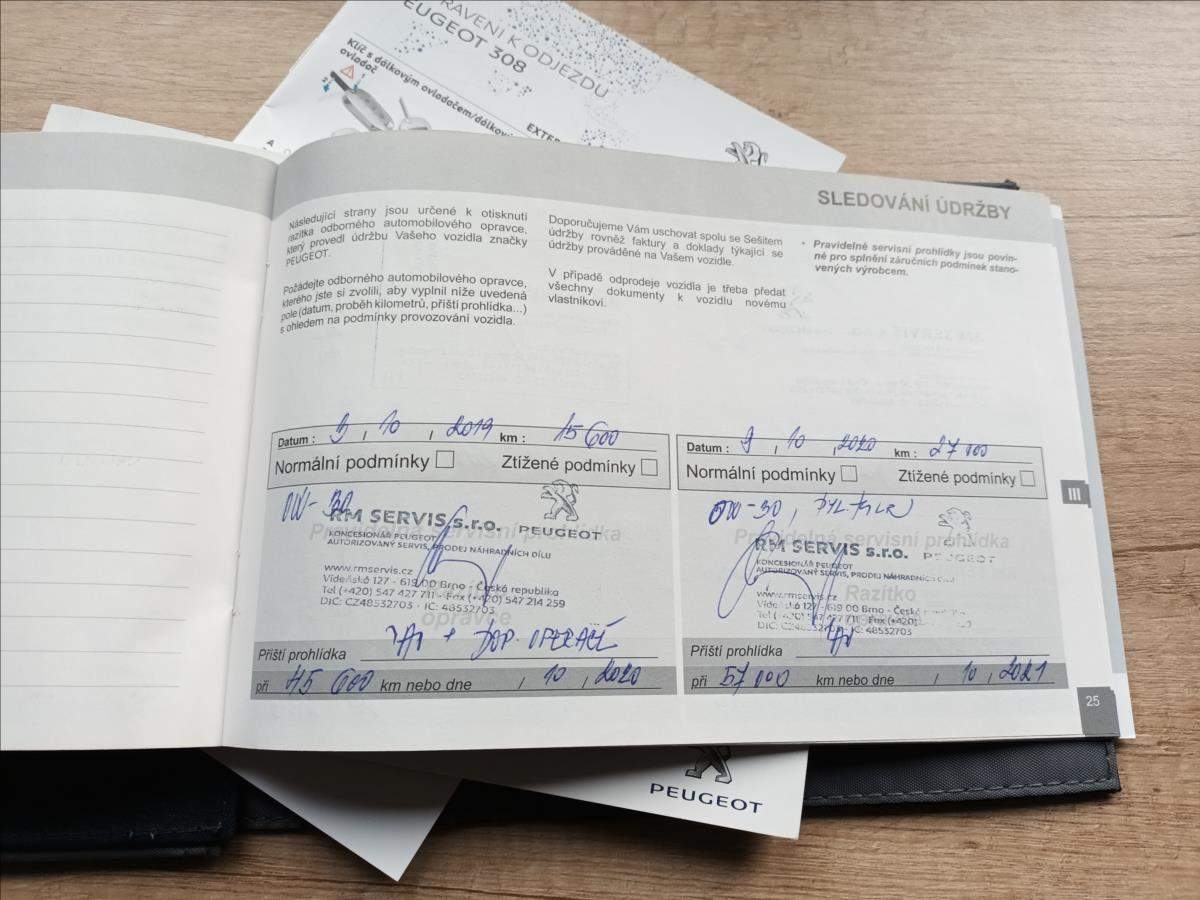 PEUGEOT 308
Klíč s dálkovým ovladačem/dálkový
ovladač
SLEDOVÁNÍ ÚDRŽBY
Následující strany jsou určené k otisknutí
razítka odborného automobilového opravce,
který provedl údržbu Vašeho vozidla značky
PEUGEOT.
Požádejte odborného automobilového opravce,
kterého jste si zvolili, aby vyplnil níže uvedená
pole (datum, proběh kilometrů, příští prohlídka...)
s ohledem na podmínky provozování vozidla.
Doporučujeme Vám uschovat spolu se Sešitem
údržby rovněž faktury a doklady týkající se
údržby prováděné na Vašem vozidle.
V případě odprodeje vozidla je třeba předat
všechny dokumenty k vozidlu novému
vlastníkovi.
• Pravidelné servisní prohlídky jsou povin-
né pro splnění záručních podmínek stano-
vených výrobcem.
Datum : 9 / 10 / 2019 km : 15 600
Normální podmínky Ztížené podmínky
OW-30
Pravidelná servisní prohlídka
RM SERVIS s.r.o. PEUGEOT
KONCESIONÁŘ PEUGEOT
AUTORIZOVANÝ SERVIS, PRODEJ NÁHRADNÍCH DÍLU
www.rmservis.cz
Vídeňská 127 - 619 00 Brno - Česká republika
Tel (+420) 547 427 711 - Fax (+420) 547 214 259
DIČ: CZ48532703 - IČ: 48532703
opravce
+ DOP. OPERACÍ
Příští prohlídka
při 45 600 km nebo dne / 10 / 2020
Datum : 9 / 10 / 2020 km : 27 000
Normální podmínky Ztížené podmínky
OW-30, PYL. FILTR
Pravidelná servisní prohlídka
RM SERVIS s.r.o. PEUGEOT
KONCESIONÁŘ PEUGEOT
AUTORIZOVANÝ SERVIS, PRODEJ NÁHRADNÍCH DÍLU
Razítko
www.rmservis.cz
Vídeňská 127 - 619 00 Brno - Česká
Tel (+420) 547 427 711 - Fax (+420)
DIČ: CZ48532703 - IČ: 48532703
Příští prohlídka
při 57 000 km nebo dne / 10 / 2021
III
25
PEUGEOT